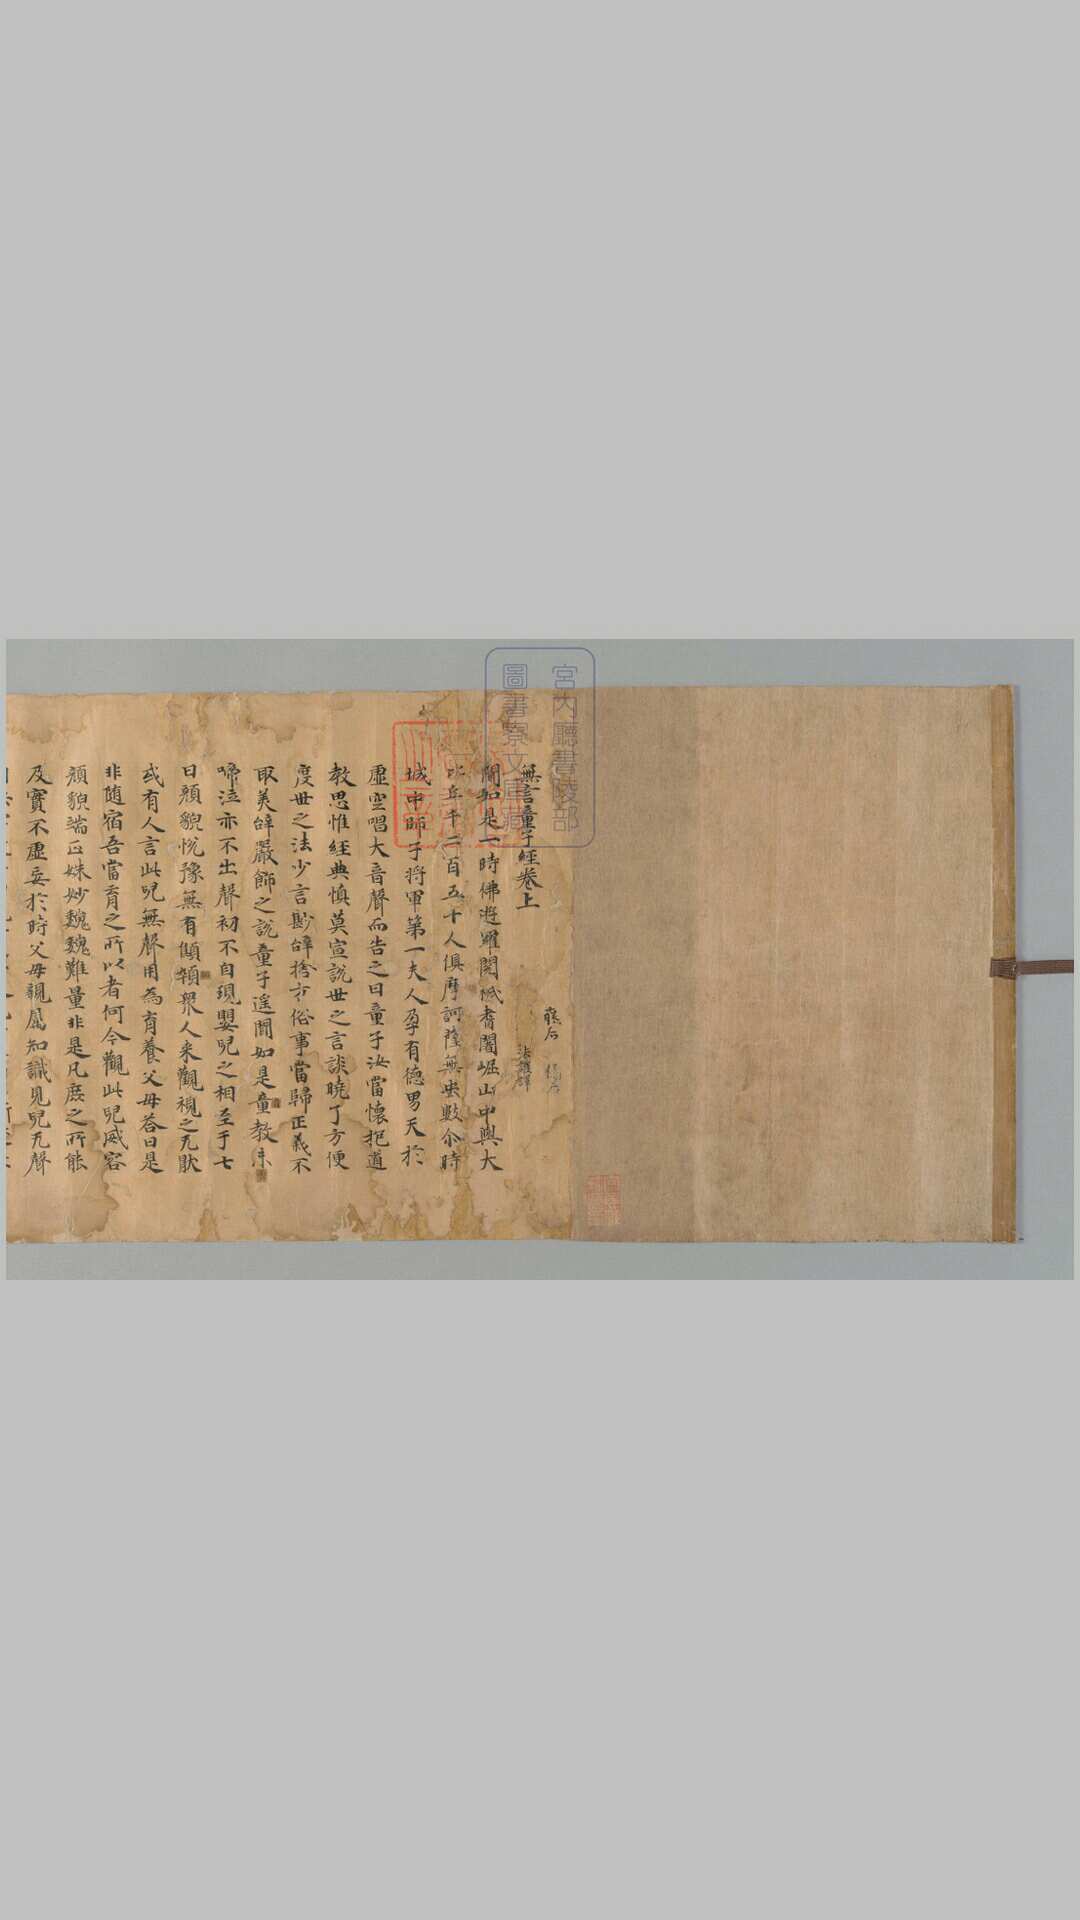 無言童子經卷上
法護譯
聞如是一時佛遊羅閱祇耆闍崛山中與大
比丘千二百五十人俱摩訶薩無央數尒時
城中師子將軍第一夫人孕有德男天於
虛空唱大音聲而告之曰童子汝當懷抱道
教思惟經典慎莫宣說世之言談曉了方便
度世之法少言尠辞捨於俗事當歸正義不
取美辞嚴飾之說童子遙聞如是童教未
啼泣亦不出聲初不自現嬰兒之相至于七
日顏貌悅豫無有傾頓衆人来觀視之无猒
或有人言此兒無聲用為育養父母荅曰是
非随宿吾當育之所以者何今觀此兒威容
顏貌端正姝妙巍巍難量非是凡庶之所能
及實不虛妄於時父母親屬知識見兒无聲
宮內廳書陵部
圖書寮文庫藏